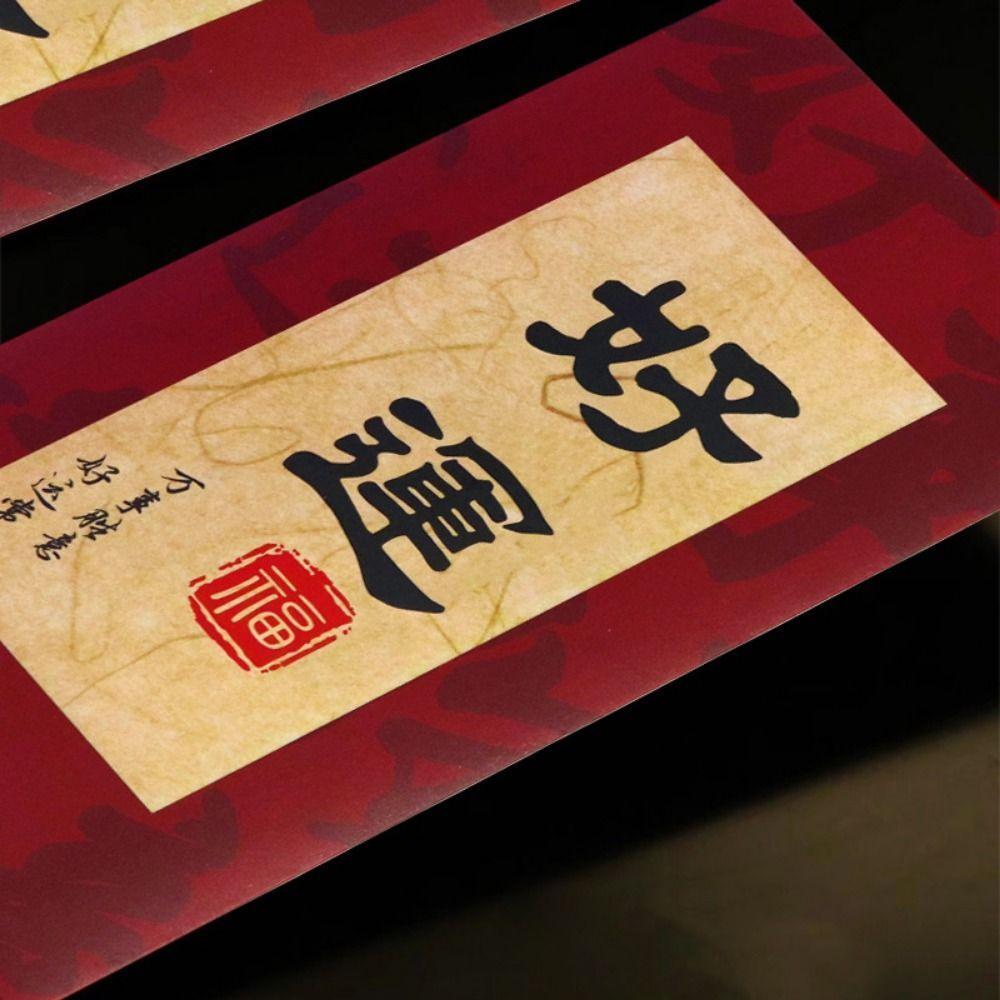 好運
福
万事胜意
好运常